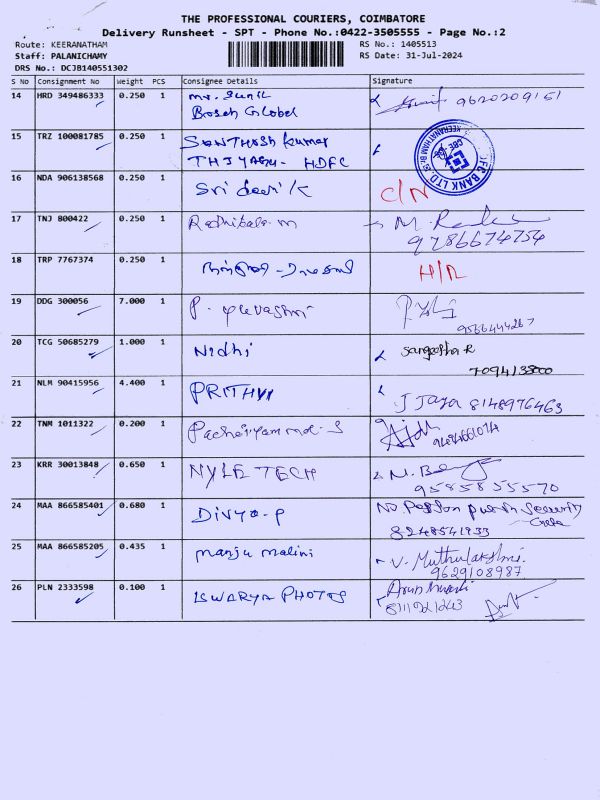 THE PROFESSIONAL COURIERS, COIMBATORE
Delivery Runsheet - SPT - Phone No.:0422-3505555 - Page No.:2
Route: KEERANATHAM RS No.: 1405513
Staff: PALANICHAMY RS Date: 31-Jul-2024
DRS No.: DCJB140551302
S No Consignment No Weight PCS Consignee Details Signature
14 HRD 349486333 0.250 1 Mr. Sunil 9620209161
Bosch Global
15 TRZ 100081785 0.250 1 Santhosh kumar
THIYAGU - HDFC
BANK LTD.
KEERANATHAM
CBE
16 NDA 906138568 0.250 1 Sri devi k C/N
17 TNJ 800422 0.250 1 Radhibala m M.
9786674754
18 TRP 7767374 0.250 1 H/R
19 DDG 300056 7.000 1 P. yuvashri
9566444267
20 TCG 50685279 1.000 1 Nidhi Sangeetha R
7094138000
21 NLM 90415956 4.400 1 PRITHVI J Jaya 8148976463
22 TNM 1011322 0.200 1
23 KRR 30013848 0.650 1 NYLE TECH N.
9585855570
24 MAA 866585401 0.680 1 Divya-P No Person Security
8248541933
25 MAA 866585205 0.435 1 manju malini V. Muthulakshmi
9629108987
26 PLN 2333598 0.100 1 ISWARYA PHOTOS
8111921243